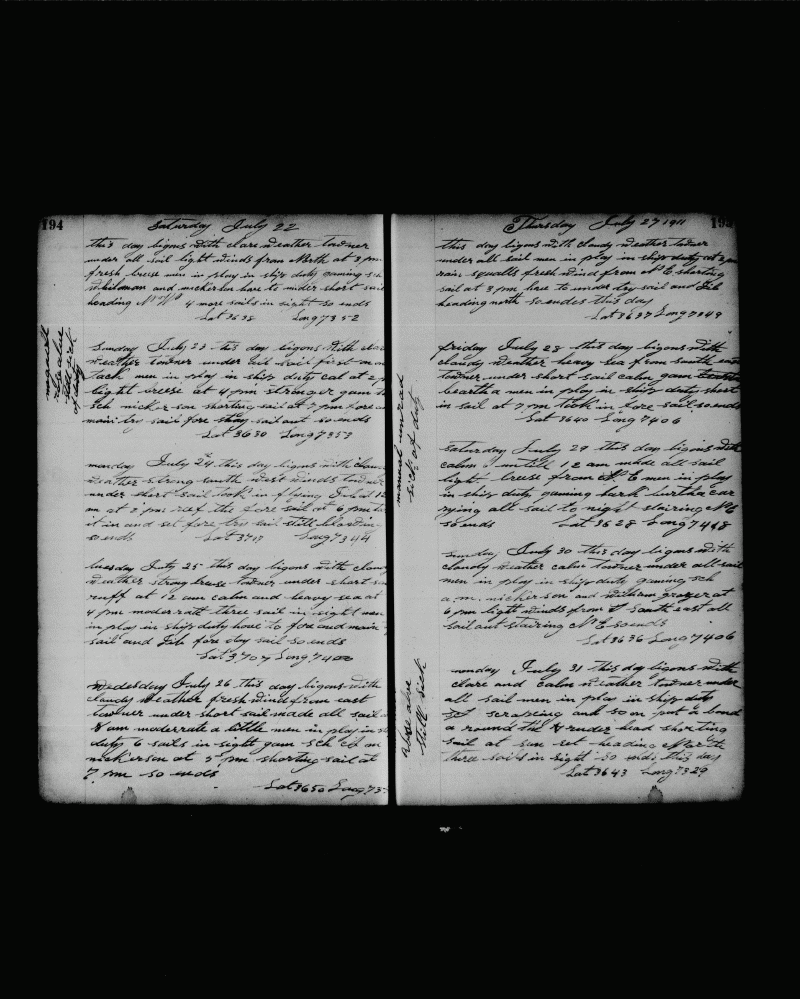 194
Saturday July 22
this day bigons with clare weather towner
under all sail light winds from North at 3 pm
fresh breuse men in play in ship duty gaming sch
Whitman and nickerson have to under short sail
heading N W 4 more sails in sight so ends
Lat 3638 Long 7352
Sunday July 23 this day bigons with clar
weather towner under but sail first on
tack men in play in ship duty at 2 p
light breese at 4 pm stronger gam
sch nickerson shorting sail at 7 pm fore an
main try sail fore stay sail out so ends
Lat 3630 Long 7353
monday July 24 this day bigons with
weather strong south west winds towner
under short sail took in flying Jib at 12
am at 3 pm reef the fore sail at 6 pm
it in and set fore try sail still
so ends Lat 3717 Long 7344
tuesday July 25 this day bigons with clowdy
weather strong breuse towner under short sa
ruff at 12 am calm and heavy sea at
4 pm moderrath three sail in sight men
in play in ship duty have to fore and main
sail and Jib fore day sail so ends
Lat 3707 Long 7400
Wedesday July 26 this day bigons with
cloudy Weather fresh winds from east
towner under short sail made all sail a
8 am moderrate a little men in play in sh
duty 6 sails in sight gam sch
nickerson at 5 pm shorting sail at
7 pm so ends
Lat 3650 Long 73
still sick
of duty
Thursday July 27 1911
195
this day bigons with cloudy weather towner
under all sail men in play in ship duty at 2 pm
rain squalls fresh wind from N E shorting
sail at 3 pm have to under day sail and Jib
heading north so ends this day
Lat 3637 Long 7349
friday July 28 this day bigons with
clowdy weather heavy sea from south
towner under short sail calm gam
beartha men in play in ship duty short
in sail at 7 pm took in fore sail so ends
Lat 3640 Long 7406
Saturday July 29 this day bigons with
calm untill 12 am made all sail
light breuse from N E men in play
in ship duty gaming bark burtha car
rying all sail to night stairing N E
so ends Lat 3628 Long 7448
sunday July 30 this day bigons with
clowdy weather calm towner under all sail
men in play in ship duty gaming sch
a. m. nickerson and william grozer at
6 pm light winds from South east all
sail out stairing N E so ends
Lat 3636 Long 7406
monday July 31 this day bigons with
clare and calm weather towner under
all sail men in play in ship duty
scraping and so on put a band
a round the ruder head shorting
sail at sun set heading North
three sails in sight so ends this day
Lat 3643 Long 7329
manuel
sick of duty
still sick